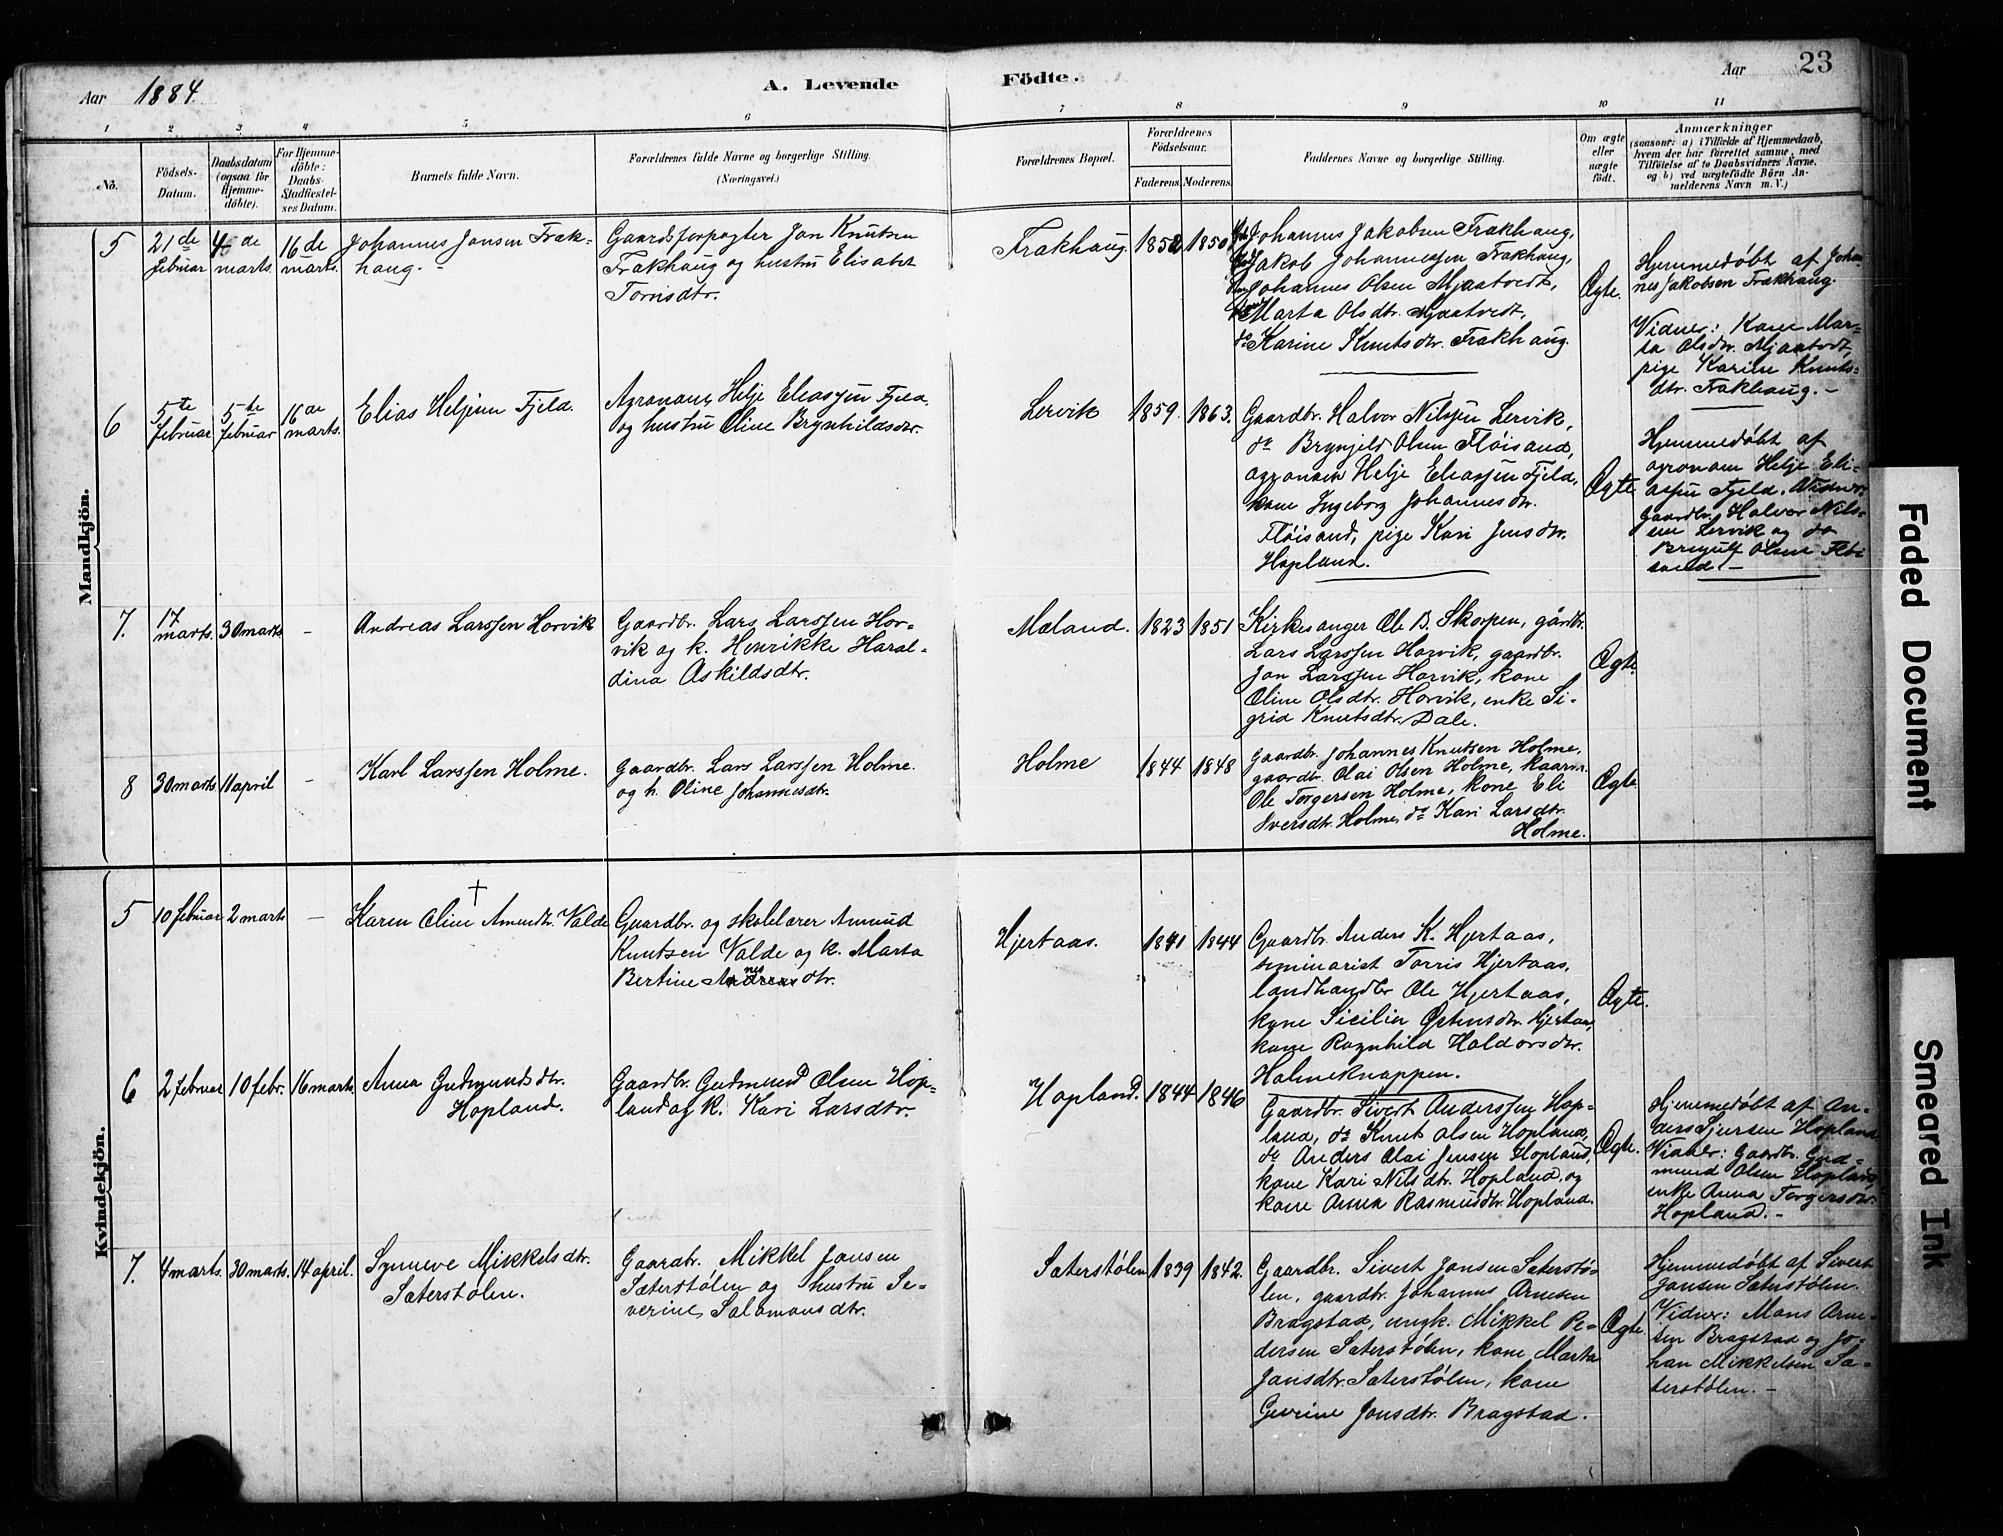 Aar 1884
A. Levende
Födte.
Aar 23
1 2 3 4 5 6 7 8 9 10 11
No.
Födsels-
Datum.
Daabsdatum
(ogsaa for
Hjemme-
döbte).
For Hjemme-
döbte:
Daabs-
Stadfæstel-
ses Datum.
Barnets fulde Navn.
Forældrenes fulde Navne og borgerlige Stilling.
(Næringsvei.)
Forældrenes Bopæl.
Forældrenes
Födselsaar.
Faderens. Moderens.
Faddernes Navne og borgerlige Stilling.
Om ægte
eller
uægte
födt.
Anmærkninger
(saasom: a) i Tilfælde af Hjemmedaab,
hvem der har forrettet samme, med
Tilföielse af to Daabsvidners Navne,
og b) ved uægtefödte Börn An-
melderens Navn m. V.)
Mandkjön.
5
21de
februar
4de
marts.
16de
marts.
Johannes Jonsen Frak-
haug.-
Gaardsforpagter Jon Knutsen
Frakhaug og hustru Elisabet
Tornsdtr.
Frakhaug. 1852 1850
Johannes Jakobsen Frakhaug,
Jakob Johannessen Frakhaug,
Johannes Olsen Mjaatvedt,
Marta Olsdtr. Mjaatvedt,
do Karine Knutsdtr. Frakhaug.
Ægte.
Hjemmedøbt af Johan
nes Jakobsen Frakhaug.
Vidner: Kone Mar-
ta Olsdtr. Mjaatvedt,
pige Karine Knuts-
dtr. Frakhaug.-
6
5te
februar
5te
februar
16de
marts.
Elias Heljesen Fjeld.
Agronom Helje Eliassen Fjeld
og hustru Oline Brynhildsdtr.
Lervik 1859. 1863.
Gaardbr. Halvor Nilssen Lervik,
do Brynjeld Olsen Fløisand,
agronom Helje Eliassen Fjeld,
kone Ingeborg Johannesdtr.
Fløisand, pige Kari Jensdtr.
Hopland.
Ægte
Hjemmedøbt af
agronom Helje Eli-
assen Fjeld. Vidner:
Gaardbr. Halvor Nils-
sen Lervik og do
Brynjulf Olsen Fløi
sand.-
7.
17
marts.
30 marts -
Andreas Larssen Horvik
Gaardbr. Lars Larssen Hor-
vik og k. Henrikke Haral-
dina Askildsdtr.
Mæland. 1823 1851
Kirkesanger Ole B. Skorpen, gårdbr.
Lars Larssen Horvik, gaardbr.
Jon Larssen Horvik, kone
Oline Olsdtr. Horvik, enke Si-
grid Knutsdtr. Dale.
Ægte.
8 30 marts 11 april -
Karl Larssen Holme.
Gaardbr. Lars Larssen Holme.
og h. Oline Johannesdtr.
Holme 1844 1848
Gaardbr. Johannes Knutsen Holme,
gaardbr. Olai Olsen Holme, kaarm.
Ole Torgersen Holme, kone Eli
Iversdtr. Holme, do Kari Larsdtr.
Holme.
Ægte
Kvindekjön.
5 10 februar 2 marts -
†
Karen Oline Amundtr. Valde
Gaardbr. og skolelærer Amund
Knutsen Valde og k. Marta
Bertine dtr.
Hjertaas. 1841 1844
Gaardbr. Anders K. Hjertaas,
seminarist Torris Hjertaas,
landhandler Ole Hjertaas,
kone Sicilia Østensdtr. Hjertaas,
kone Ragnhild Haldorsdtr.
Holmeknappen.
Ægte.
6 2 februar 10 febr. 16 marts
Anna Gudmundsdtr.
Hopland.
Gaardbr. Gudmund Olsen Hop-
land og k. Kari Larsdtr.
Hopland. 1844 1846
Gaardbr. Sivert Anderssen Hop-
land, do Knut Olsen Hopland,
do Anders Olai Jensen Hopland,
kone Kari Nilsdtr. Hopland, og
kone Anna Rasmusdtr. Hopland.
Ægte.
Hjemmedøbt af An-
ders Sjursen Hopland
Vidner: Gaardbr. Gud-
mund Olsen Hopland,
enke Anna Torgersdtr.
Hopland.-
7. 4 marts. 30 marts. 14 april.
Synneve Mikkelsdtr.
Sæterstølen.
Gaardbr. Mikkel Jonsen
Sæterstølen og hustru Se-
verine Salamonsdtr.
Sæterstølen 1839 1842.
Gaardbr. Sivert Jonsen Sæterstø-
len, gaardbr. Johannes Arnesen
Bragstad, ungk. Mikkel Pe-
dersen Sæterstølen, kone Marta
Jonsdtr. Sæterstølen, kone
Geverine Jonsdtr. Bragstad.
Ægte
Hjemmedøbt af Sivert
Jonsen Sæterstølen.
Vidner: Mons Arne-
sen Bragstad og Jo-
han Mikkelsen Sæ-
terstølen.-
Faded Document
Smeared Ink